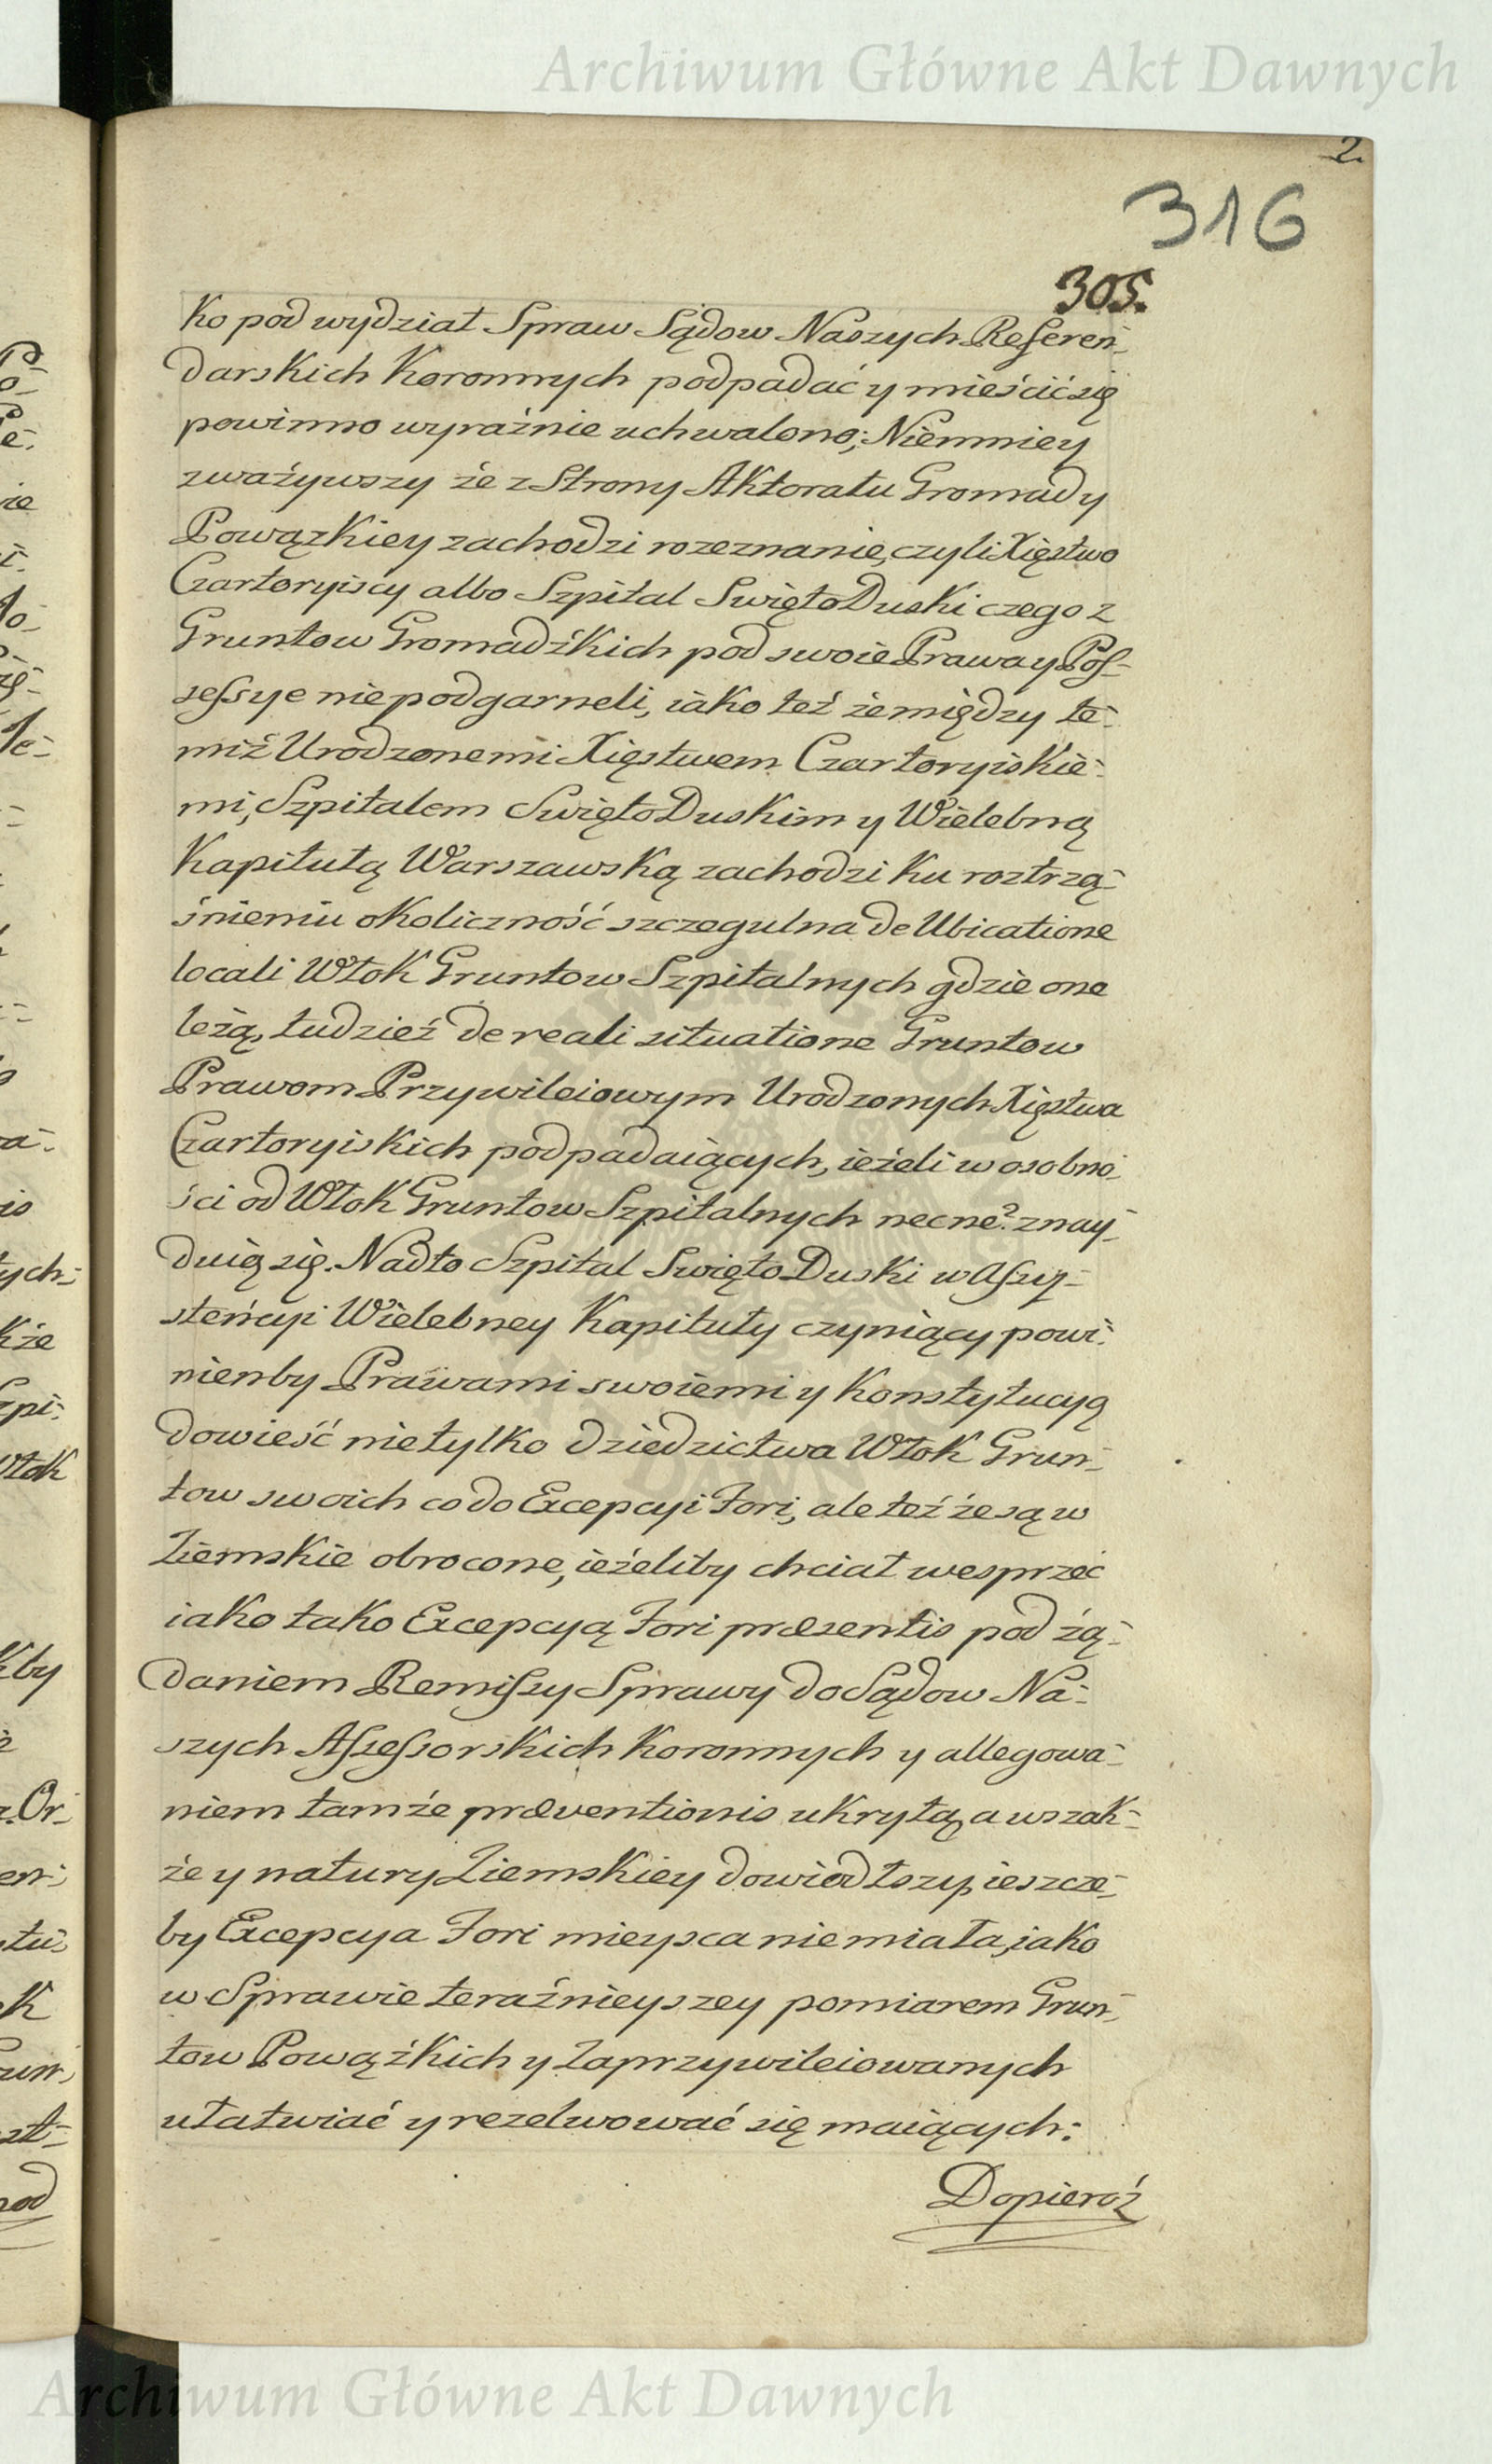 Archiwum Główne Akt Dawnych
2.
316
305.
Ko pod wydział Spraw Sądow Naszych Referen-
darskich Koronnych podpadać y mieścić się
powinno wyraźnie uchwalono; Niemniey
zważywszy że z Strony Aktoratu Gromady
Powązkiey zachodzi rozeznanie, czyli Xięstwo
Czartoryiscy albo Szpital Swięto Duski czego z
Gruntow Gromadźkich pod swoie Prawa y Pos-
sessye niepodgarneli, iako też że między te-
miż Urodzonemi Xięstwem Czartoryiskie-
mi, Szpitalem Swięto Duskim y Wielebną
Kapitułą Warszawską zachodzi ku roztrzą-
śnieniu okoliczność szczegulna de Ubicatione
locali Włok Gruntow Szpitalnych gdzie one
leżą, tudzież de reali situatione Gruntow
Prawom Przywileiowym Urodzonych Xięstwa
Czartoryiskich podpadaiących, ieżeli w osobno-
ści od Włok Gruntow Szpitalnych necne? znay-
duią się. Nadto Szpital Swięto Duski w Assy-
stencyi Wielebney Kapituły czyniący powi-
nienby Prawami swoiemi y Konstytucyą
dowieść nietylko dziedzictwa Włok Grun-
tow swoich co do Excepcyi Fori, ale też że są w
Ziemskie obrocone, ieżeliby chciał wesprzeć
iako tako Excepcyą Fori præsentis pod żą-
daniem Remissy Sprawy do Sądow Na-
szych Assessorskich Koronnych y allegowa-
niem tamże præventionis ukrytą, a wszak-
że y natury Ziemskiey dowiodłszy, ieszcze-
by Excepcya Fori mieysca niemiała, iako
w Sprawie teraźnieyszey pomiarem Grun-
tow Powąźkich y Zaprzywileiowanych
ułatwiać y rezolwować się maiących:
Dopieroż
Archiwum Główne Akt Dawnych